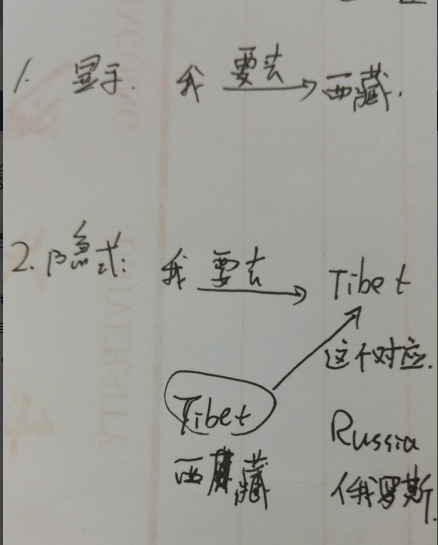 1. 显示. 我 要去 西藏.
2. 隐式: 我 要去 Tibet
这个对应.
Tibet Russia
西藏 俄罗斯.